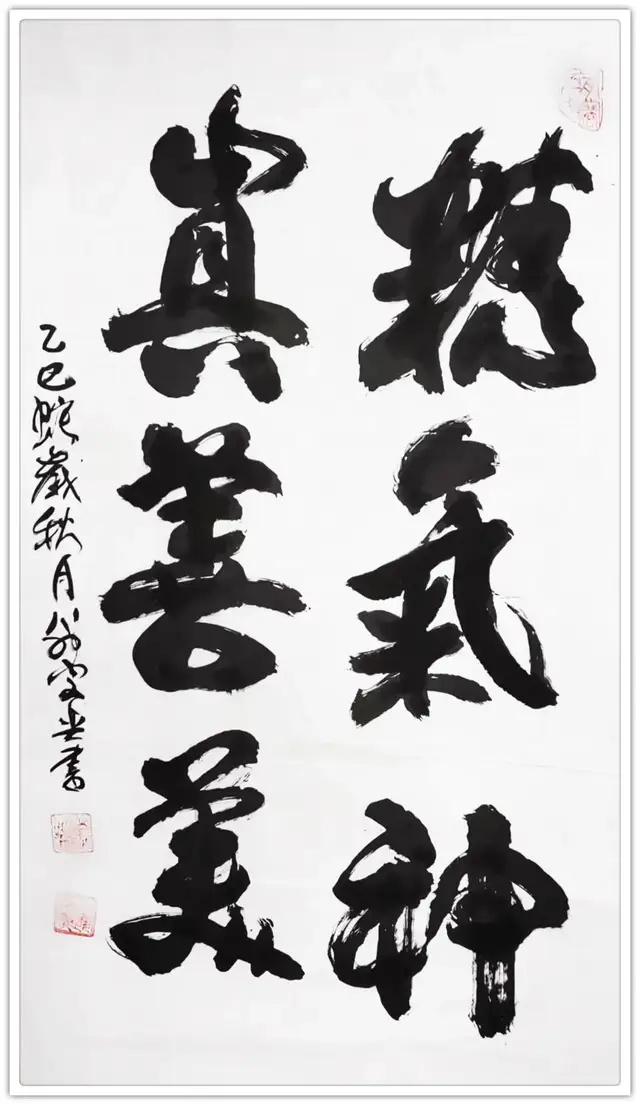 精氣神
真善美
乙巳蛇歲秋月翁安書